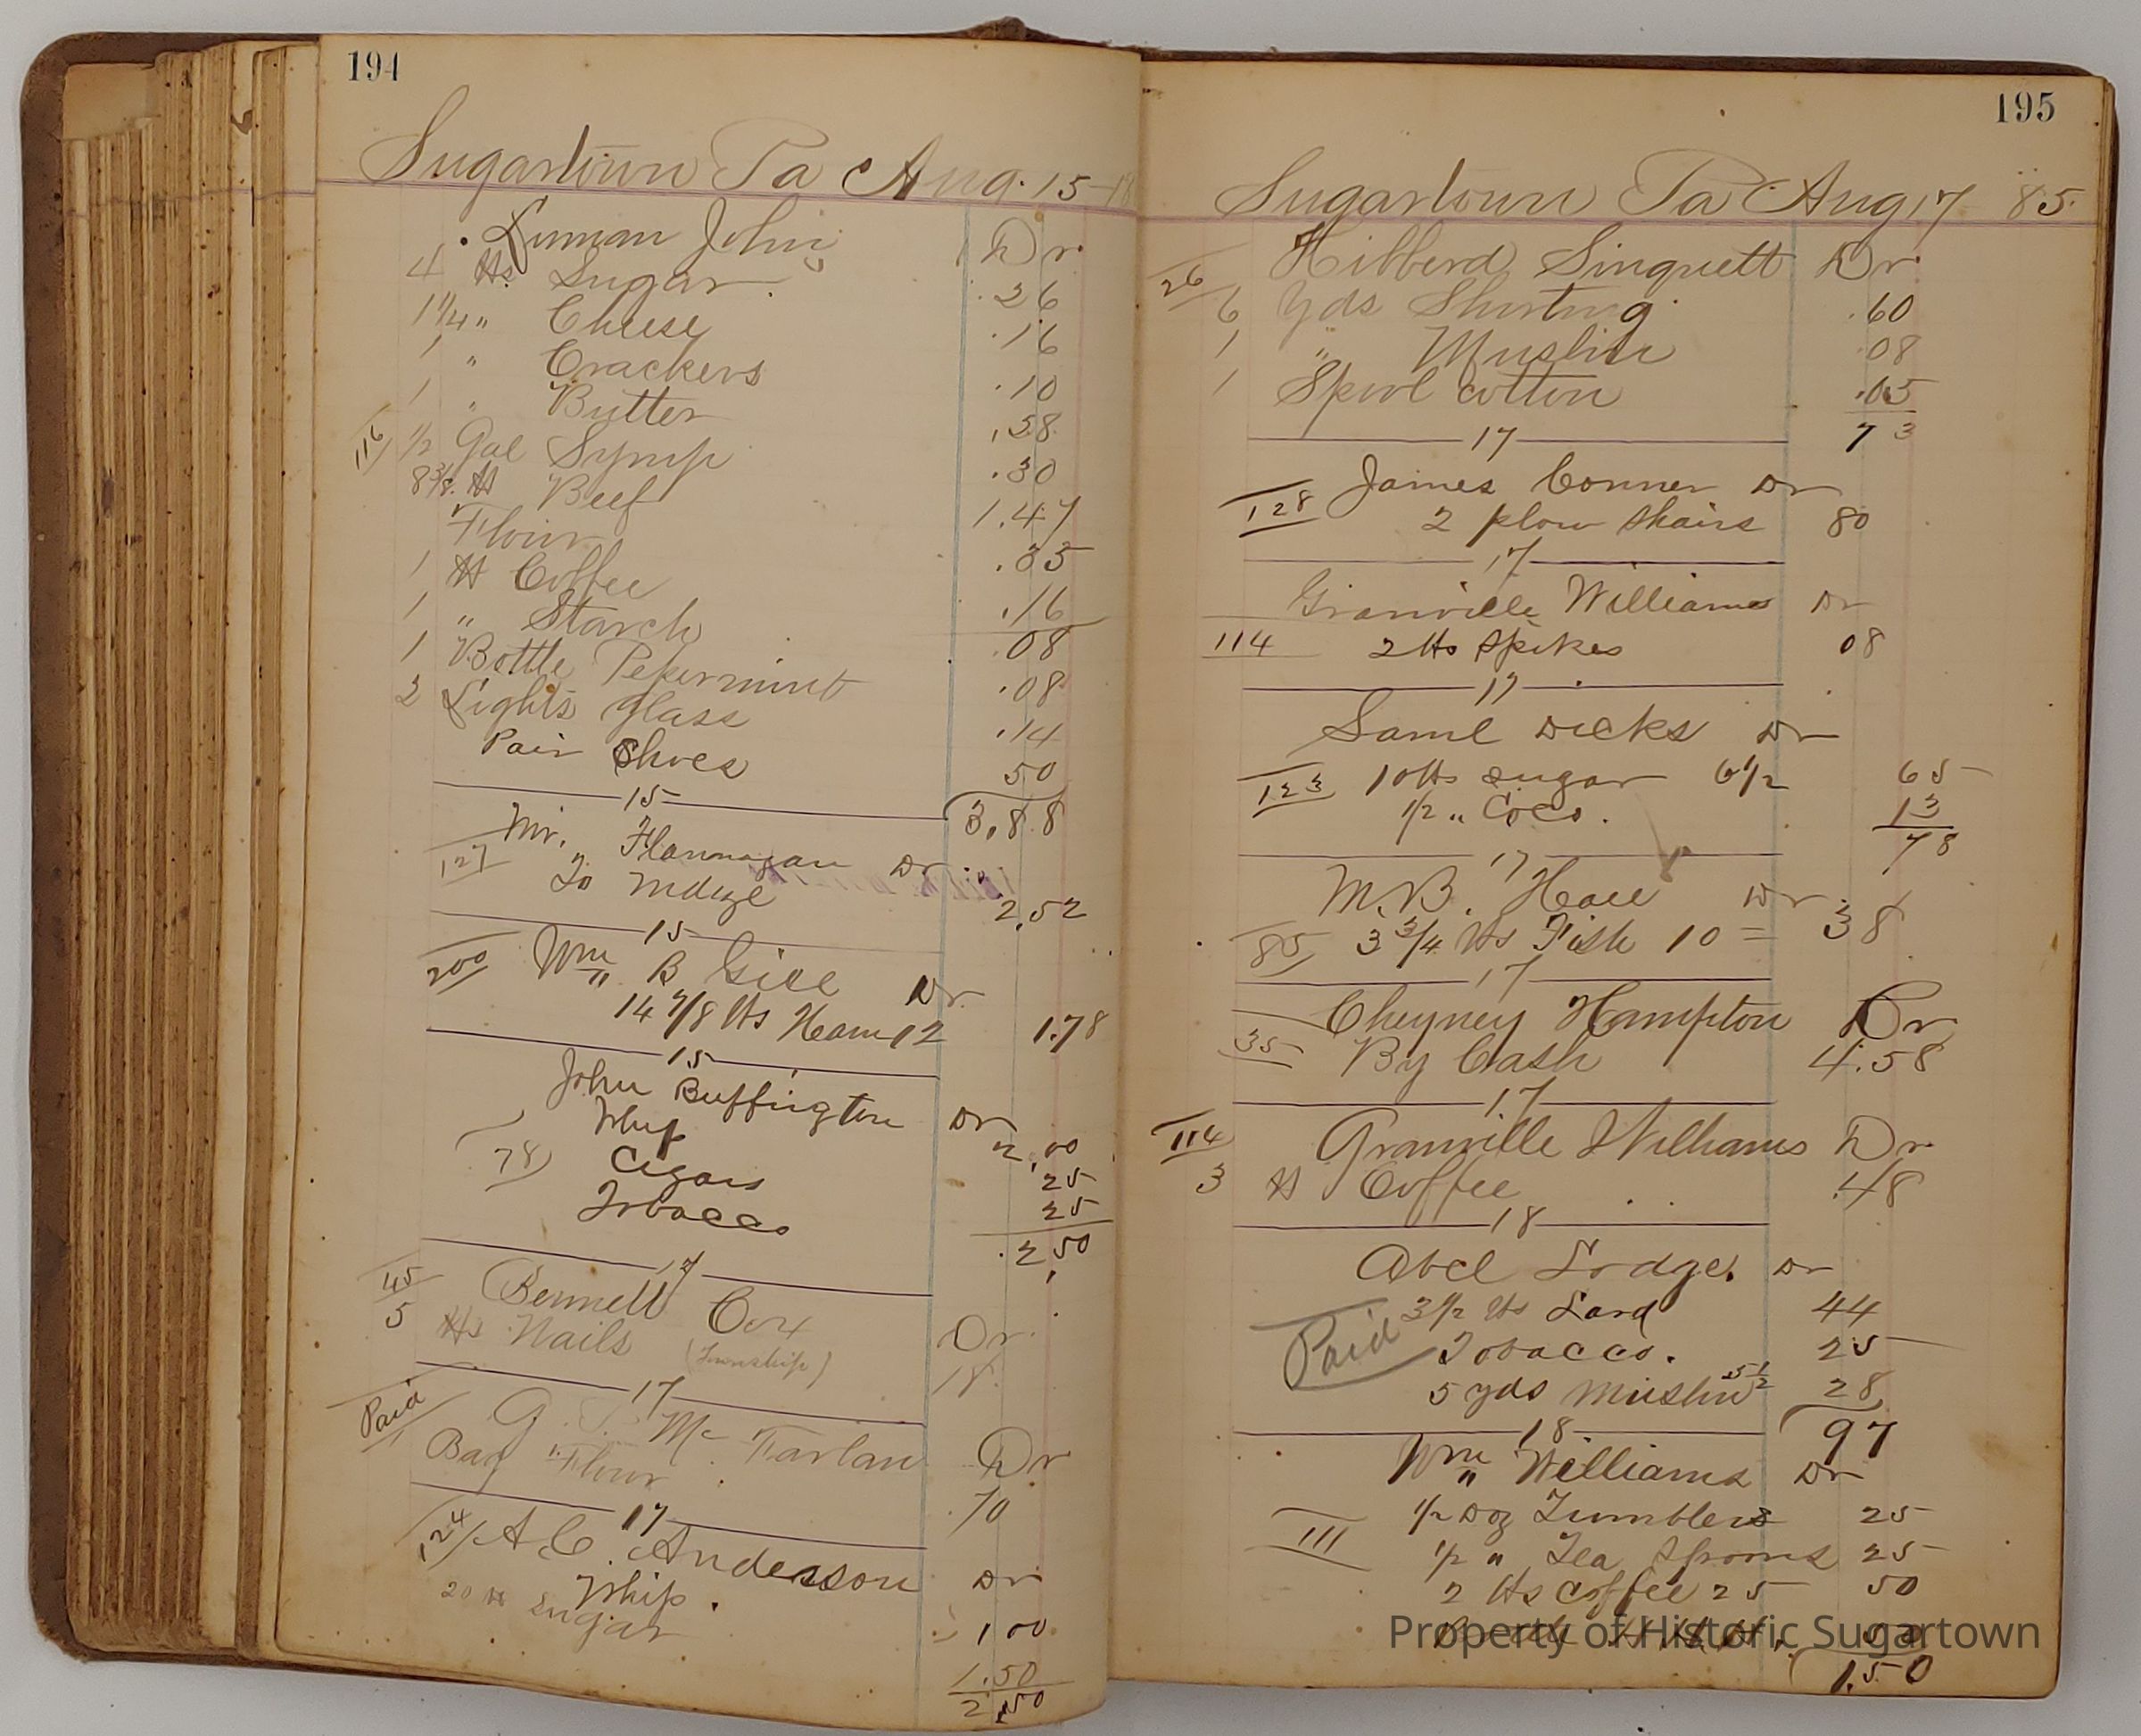 194
Sugartown Pa Aug. 15-18
Luman John Dr
4 lbs Sugar .26
1 1/4 " Cheese .16
1 " Crackers .10
1 " Butter .28
116 1/2 Gal Syrup .30
8 3/8 lb Beef 1.47
Flour .35
1 lb Coffee .16
1 " Starch .08
1 Bottle Pepermint .08
2 Lights Glass .14
Pair Shoes 50
15 3,88
Mr. Flannagan Dr
127 To Mdze 2,52
15
200 Wm B Gill Dr
14 7/8 lbs Ham 12 1.78
15
John Buffington Dr
Whip 2,00
78 Cigars 25
Tobacco 25
2,50
17
45 Bennett Cox Dr
5 lbs Nails (Township) 18
17
Paid G. Mc Farlan Dr
Bag Flour .70
17
124 A C. Anderson Dr
Whip. 100
20 lb Sugar 1.50
2,50
195
Sugartown Pa Aug 17 85.
26 Hibberd Singuett Dr
6 Yds Shirting .60
1 " Muslin 08
1 Spool Cotton .05
17 73
James Conner Dr
128 2 plow Shairs 80
17
Granville Williams Dr
114 2 lbs Spikes 08
17
Saml Dicks Dr
123 10 lbs Sugar 6 1/2 65
1/2 " Coco. 13
78
17
M. B. Hall Dr
85 3 3/4 lbs Fish 10 = 38
17
Cheyney Hampton Cr
35 By Cash 4.58
17
114 Granville Williams Dr
3 lb Coffee .48
18
Abel Lodge. Dr
3 1/2 lbs Lard 44
Paid Tobacco. 25
5 yds Muslin 5 1/2 28
18 97
Wm Williams Dr
1/2 Doz Tumblers 25
111 1/2 " Tea Spoons 25
2 lbs Coffee 25 50
50
Property of Historic Sugartown
1.50